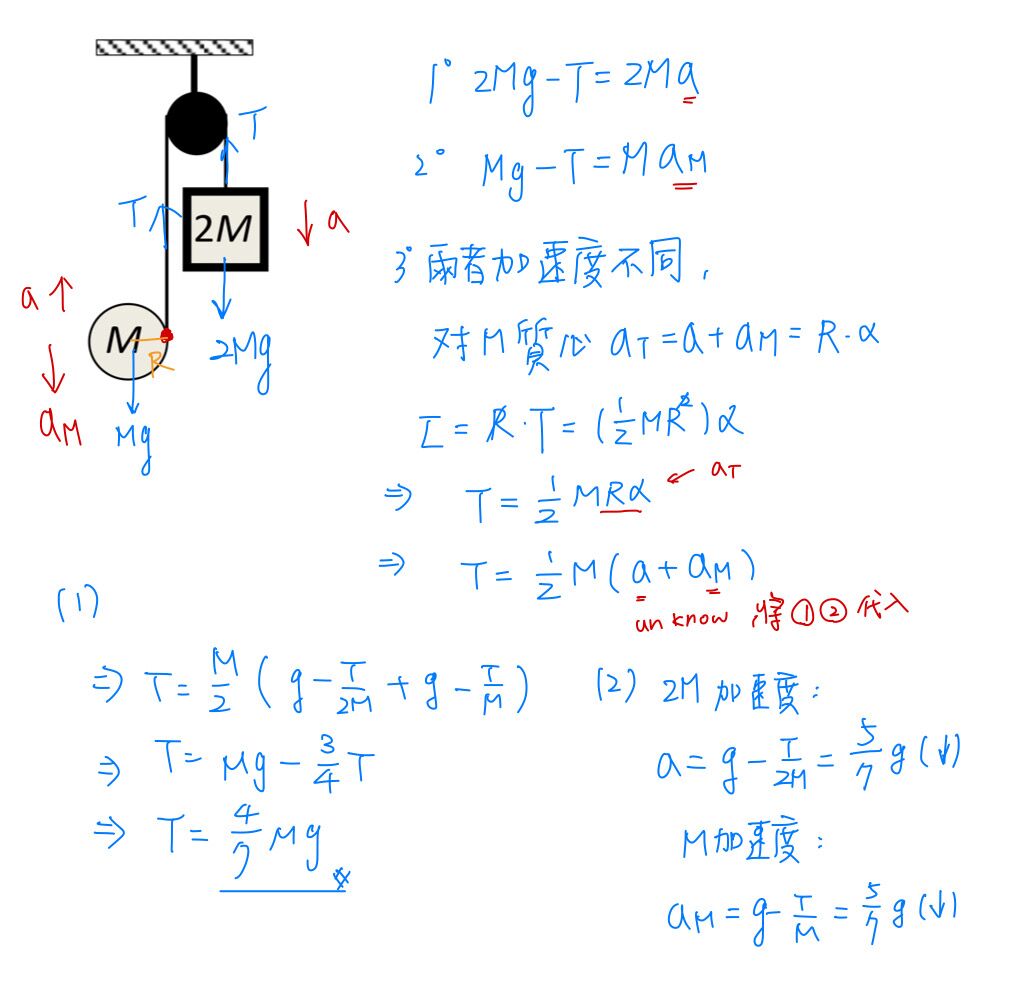 T
T
2M
↓ a
a ↑
M
R
2Mg
↓
a_M
Mg
1° 2Mg - T = 2Ma
2° Mg - T = Ma_M
3° 兩者加速度不同,
对 M 質心 a_T = a + a_M = R·α
I = R·T = (½MR²)α
⇒ T = ½MRα ← a_T
⇒ T = ½M(a + a_M)
unknow, 將①②代入
(1)
⇒ T = M/2 (g - T/2M + g - T/M)
⇒ T = Mg - ¾T
⇒ T = 4/7 Mg #
(2) 2M 加速度:
a = g - T/2M = 5/7 g (↓)
M加速度:
a_M = g - T/M = 5/7 g (↓)